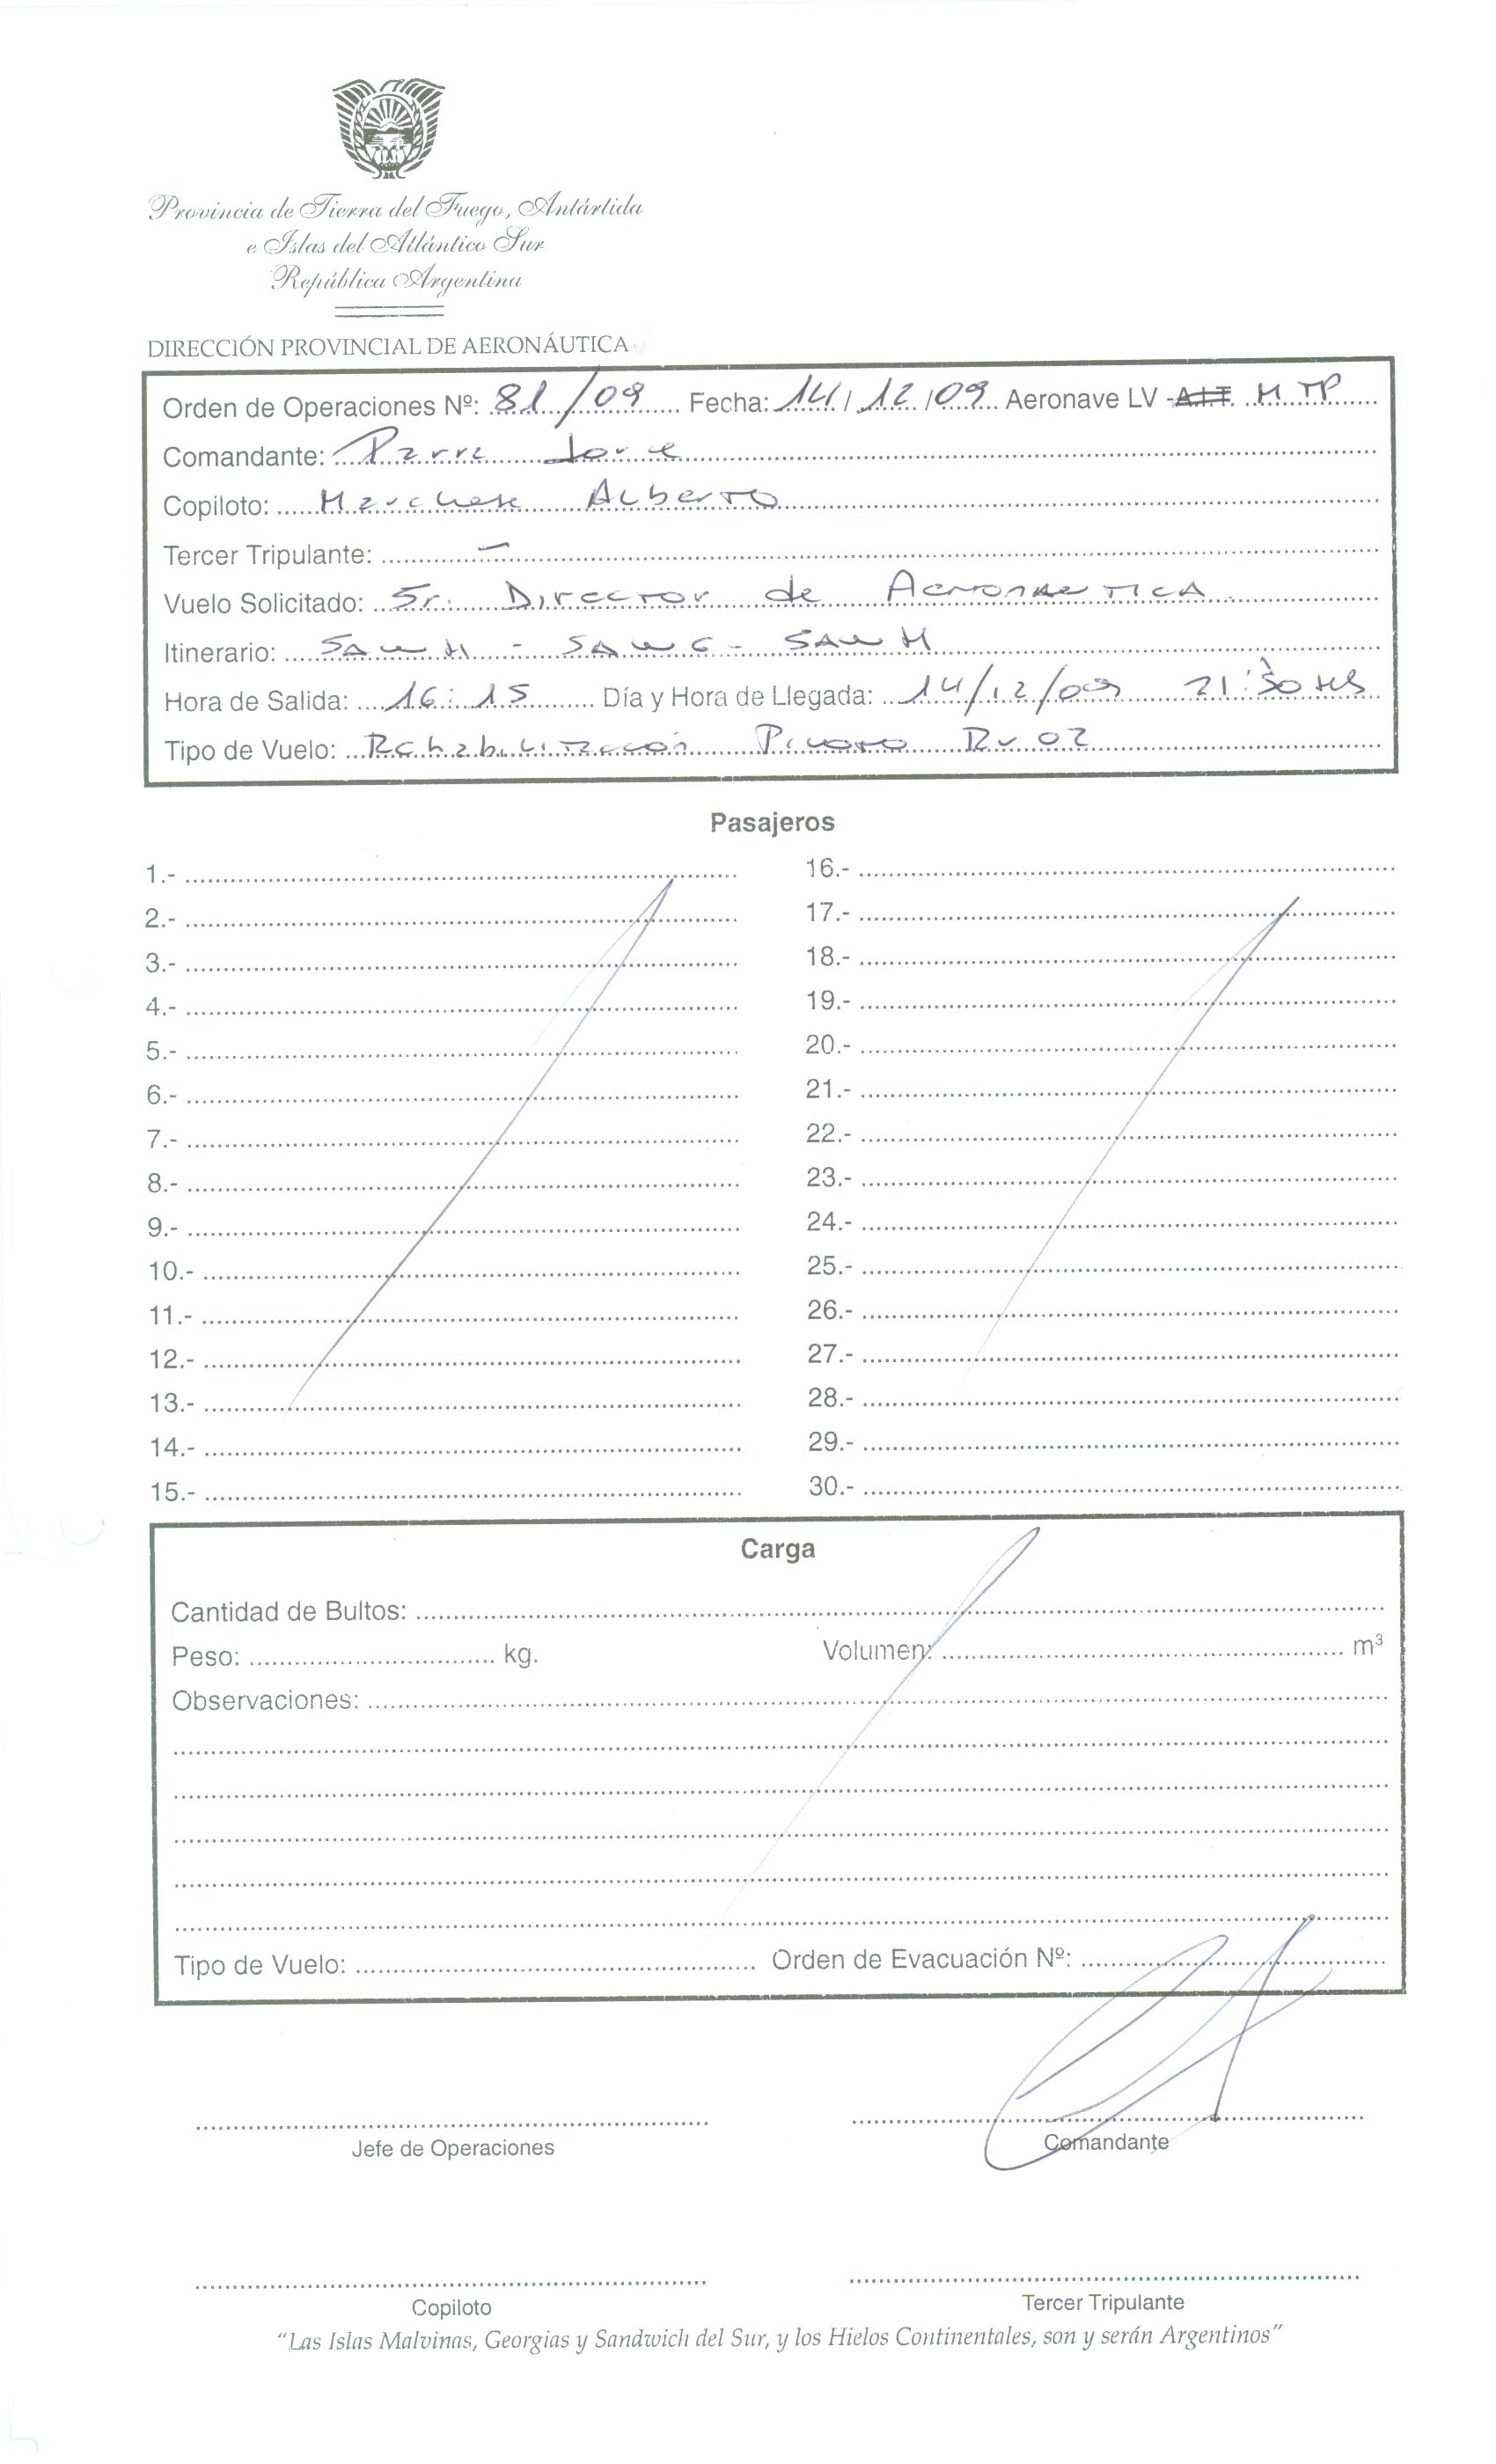 Provincia de Tierra del Fuego, Antártida
e Islas del Atlántico Sur
República Argentina
DIRECCIÓN PROVINCIAL DE AERONÁUTICA
Orden de Operaciones Nº: 81/09 Fecha: 14/12/09 Aeronave LV - A.I.T. MTP
Comandante: Parra Jorge
Copiloto: Marchese Alberto
Tercer Tripulante: -
Vuelo Solicitado: Sr. Director de Aeronautica
Itinerario: SAWH - SAWG - SAWH
Hora de Salida: 16:15 Día y Hora de Llegada: 14/12/09 21:50 Hs
Tipo de Vuelo: Rehabilitación Piloto
Pasajeros
1.- 16.-
2.- 17.-
3.- 18.-
4.- 19.-
5.- 20.-
6.- 21.-
7.- 22.-
8.- 23.-
9.- 24.-
10.- 25.-
11.- 26.-
12.- 27.-
13.- 28.-
14.- 29.-
15.- 30.-
Carga
Cantidad de Bultos:
Peso: kg. Volumen: m³
Observaciones:
Tipo de Vuelo: Orden de Evacuación Nº:
Jefe de Operaciones Comandante
Copiloto Tercer Tripulante
"Las Islas Malvinas, Georgias y Sandwich del Sur, y los Hielos Continentales, son y serán Argentinos"